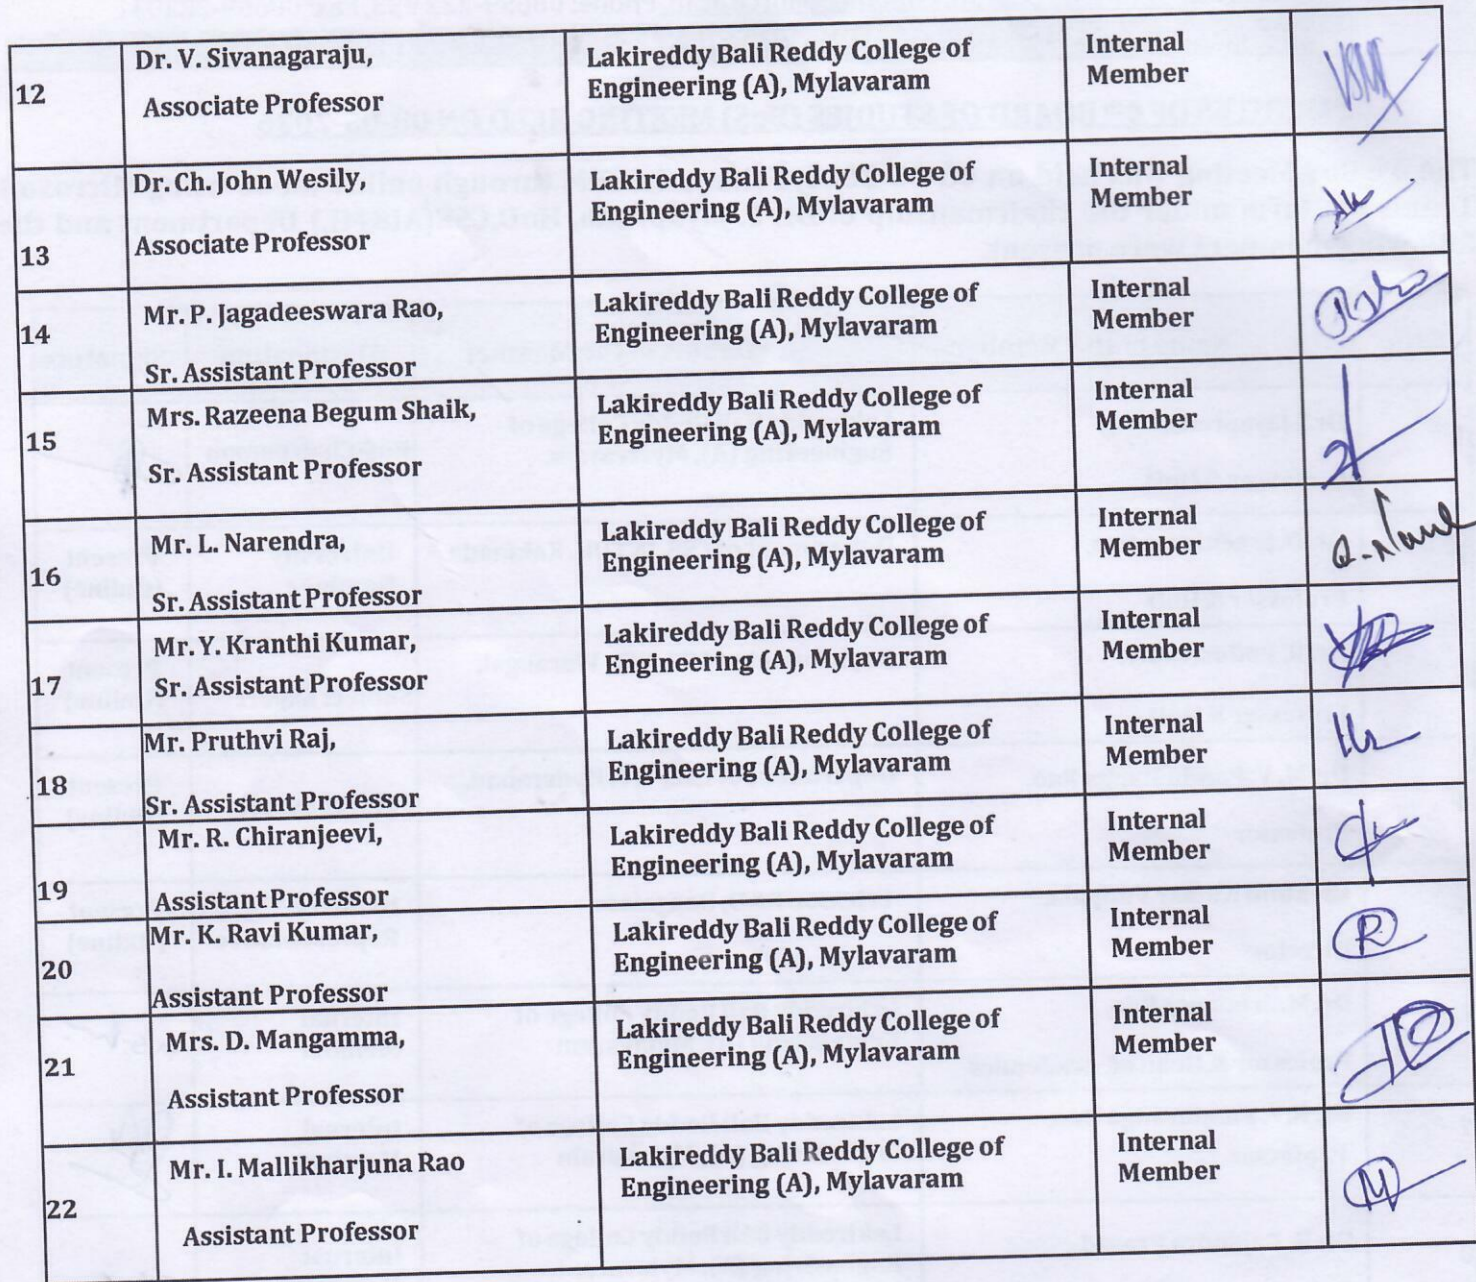 12
Dr. V. Sivanagaraju,
Associate Professor
Lakireddy Bali Reddy College of
Engineering (A), Mylavaram
Internal
Member
13
Dr. Ch. John Wesily,
Associate Professor
Lakireddy Bali Reddy College of
Engineering (A), Mylavaram
Internal
Member
14
Mr. P. Jagadeeswara Rao,
Sr. Assistant Professor
Lakireddy Bali Reddy College of
Engineering (A), Mylavaram
Internal
Member
15
Mrs. Razeena Begum Shaik,
Sr. Assistant Professor
Lakireddy Bali Reddy College of
Engineering (A), Mylavaram
Internal
Member
16
Mr. L. Narendra,
Sr. Assistant Professor
Lakireddy Bali Reddy College of
Engineering (A), Mylavaram
Internal
Member
17
Mr. Y. Kranthi Kumar,
Sr. Assistant Professor
Lakireddy Bali Reddy College of
Engineering (A), Mylavaram
Internal
Member
18
Mr. Pruthvi Raj,
Sr. Assistant Professor
Lakireddy Bali Reddy College of
Engineering (A), Mylavaram
Internal
Member
19
Mr. R. Chiranjeevi,
Assistant Professor
Lakireddy Bali Reddy College of
Engineering (A), Mylavaram
Internal
Member
20
Mr. K. Ravi Kumar,
Assistant Professor
Lakireddy Bali Reddy College of
Engineering (A), Mylavaram
Internal
Member
21
Mrs. D. Mangamma,
Assistant Professor
Lakireddy Bali Reddy College of
Engineering (A), Mylavaram
Internal
Member
22
Mr. I. Mallikharjuna Rao
Assistant Professor
Lakireddy Bali Reddy College of
Engineering (A), Mylavaram
Internal
Member